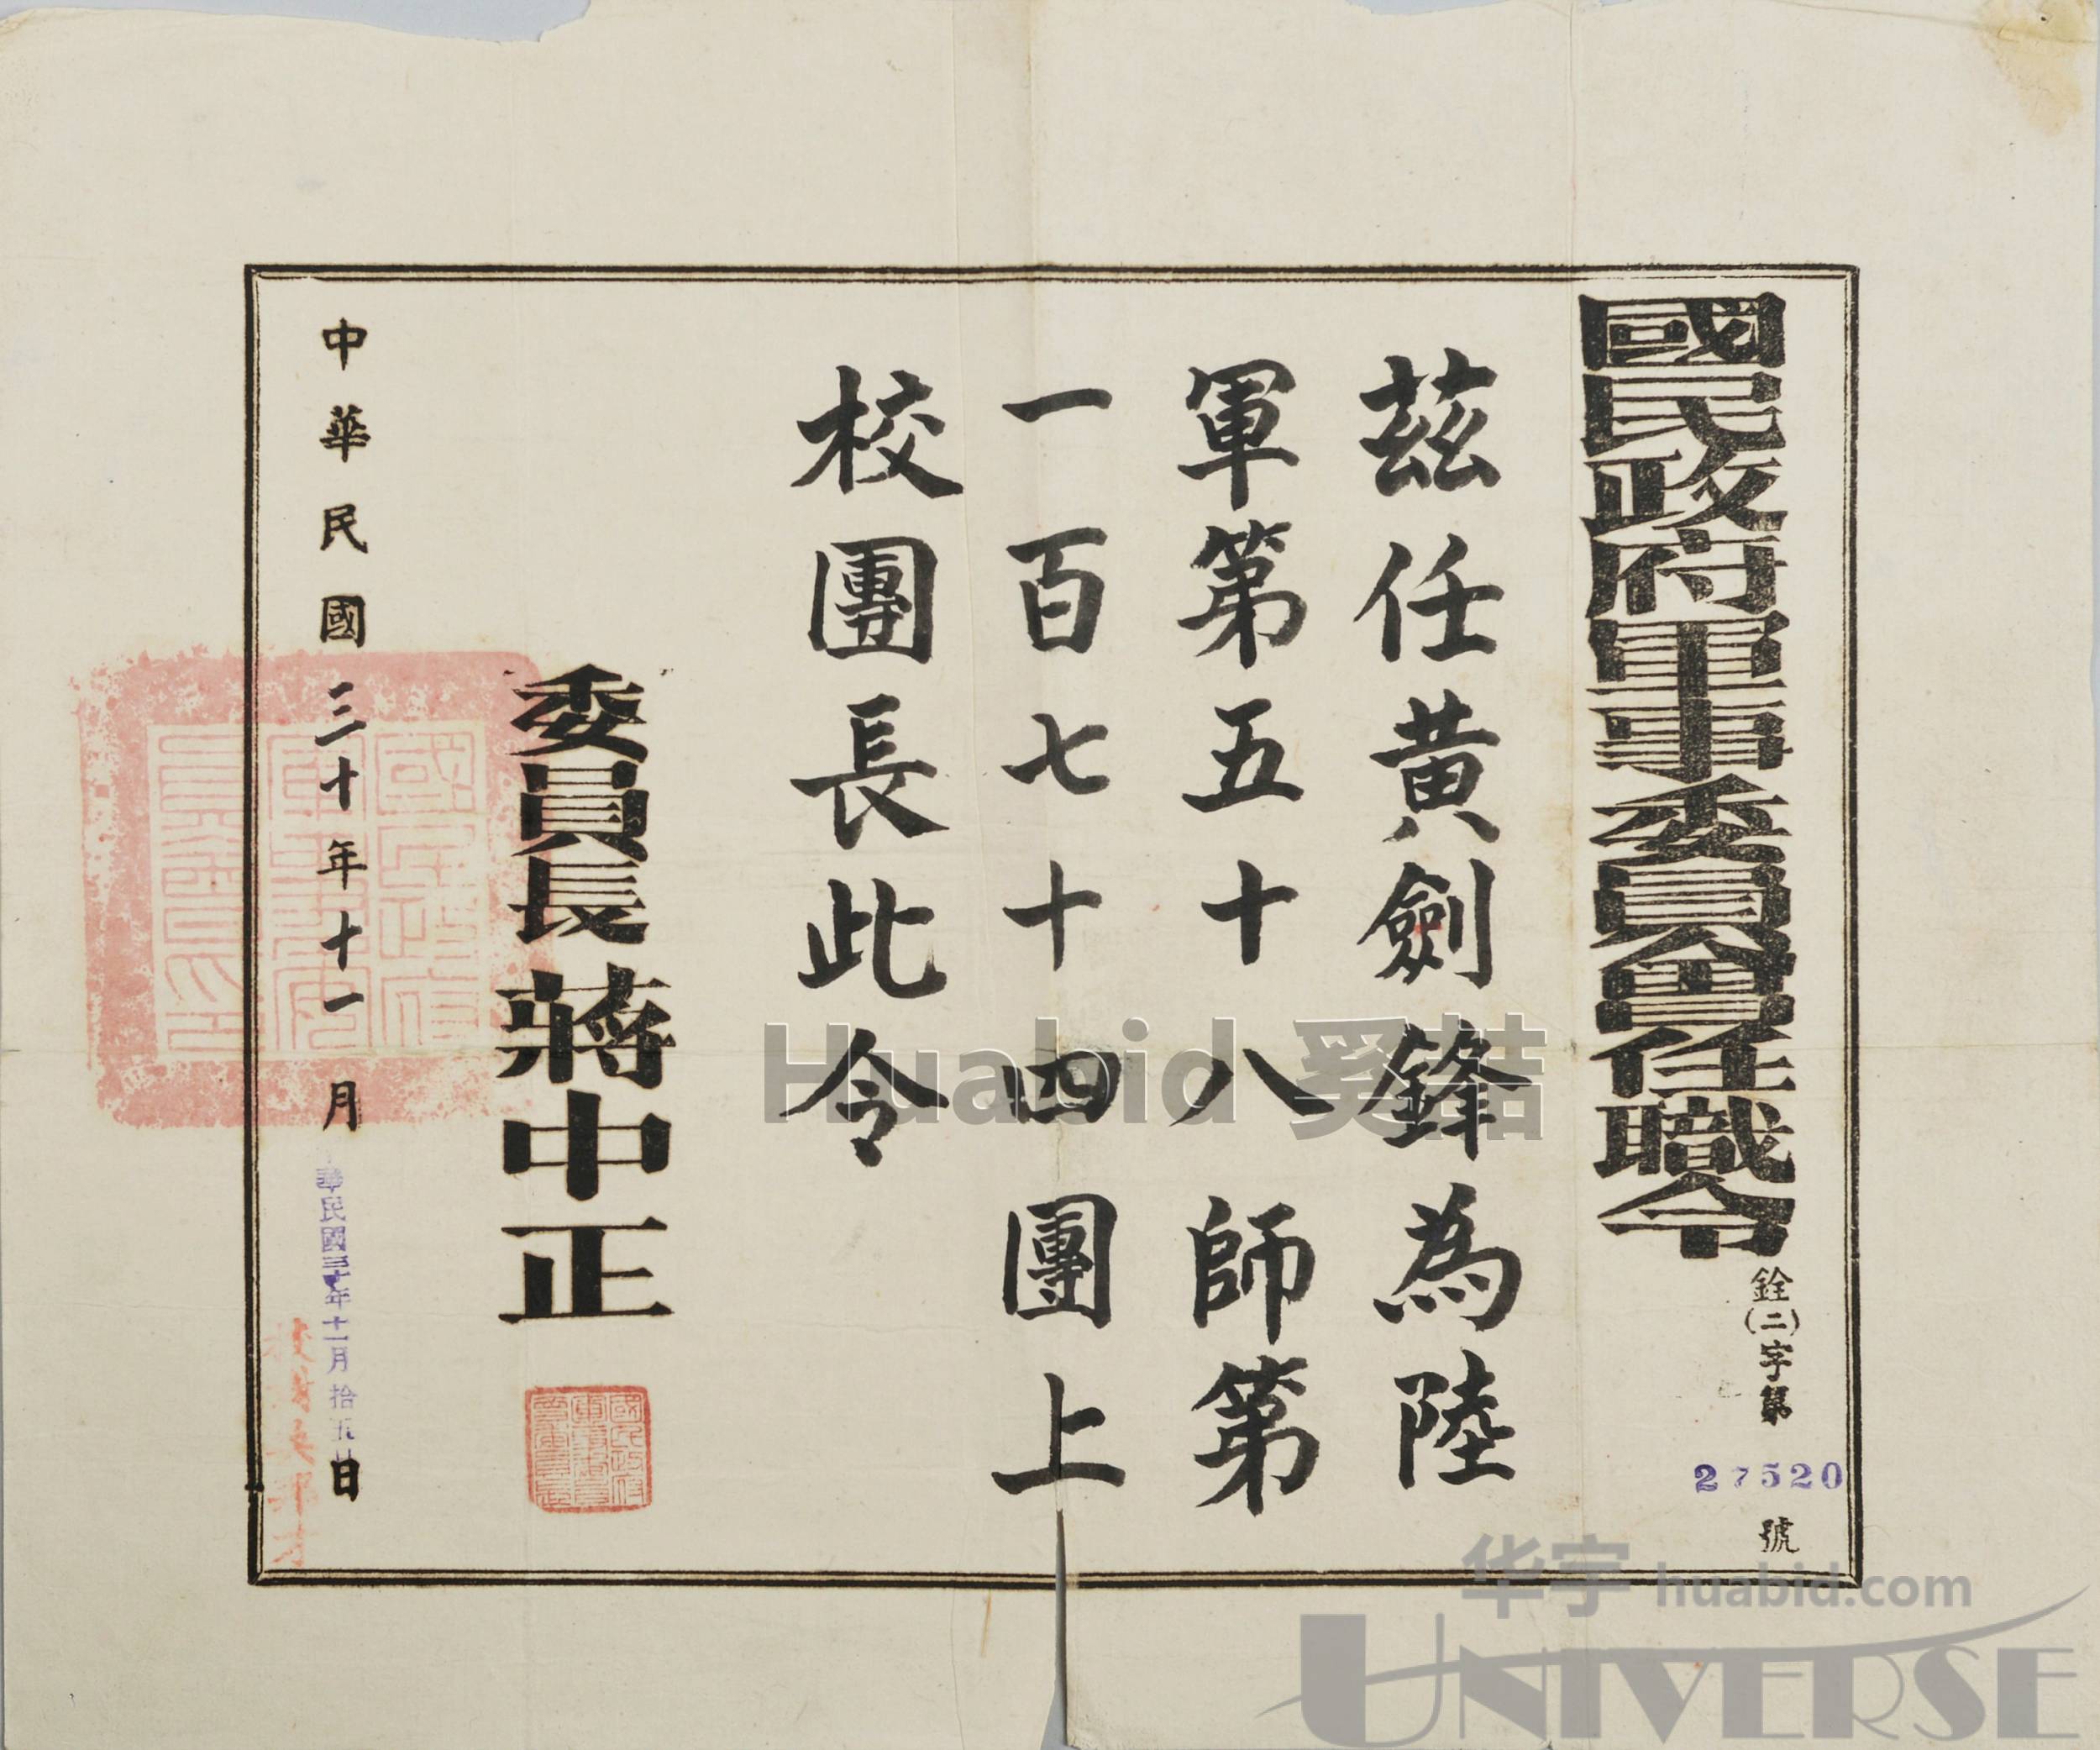 國民政府軍事委員會任職令
銓(二)字第27520號
茲任黃劍鋒為陸
軍第五十八師第
一百七十四團上
校團長此令
委員長 蔣中正
中華民國三十年十一月
華民國三十年十一月拾五日
國民政府
軍事委
員會印
Huabid 奚喆
华宇 huabid.com
UNIVERSE